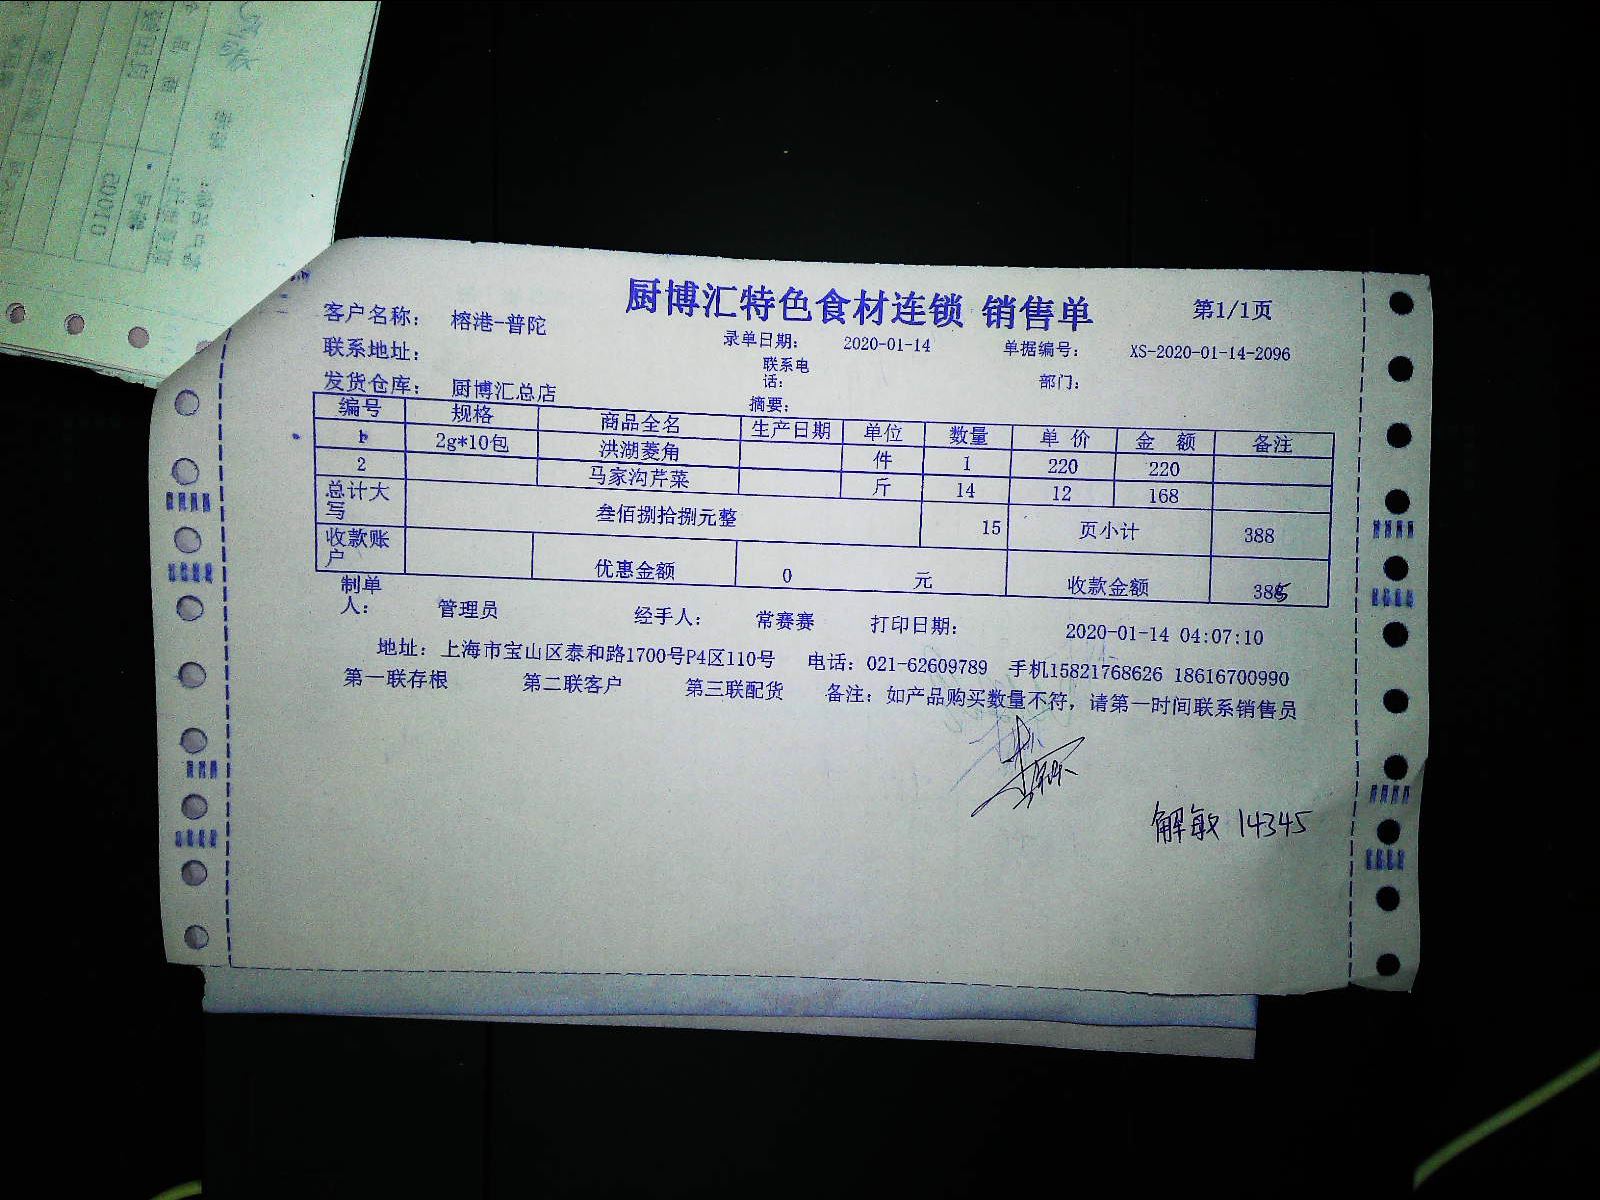 厨博汇特色食材连锁 销售单 第1/1页
客户名称: 榕港-普陀 录单日期: 2020-01-14 单据编号: XS-2020-01-14-2096
联系地址: 联系电话: 部门:
发货仓库: 厨博汇总店 摘要:
编号 规格 商品全名 生产日期 单位 数量 单价 金额 备注
1 2g*10包 洪湖菱角 件 1 220 220
2 马家沟芹菜 斤 14 12 168
总计大写 叁佰捌拾捌元整 15 页小计 388
收款账户 优惠金额 0 元 收款金额 385
制单人: 管理员 经手人: 常赛赛 打印日期: 2020-01-14 04:07:10
地址: 上海市宝山区泰和路1700号P4区110号 电话: 021-62609789 手机15821768626 18616700990
第一联存根 第二联客户 第三联配货 备注: 如产品购买数量不符, 请第一时间联系销售员
解敏 14345